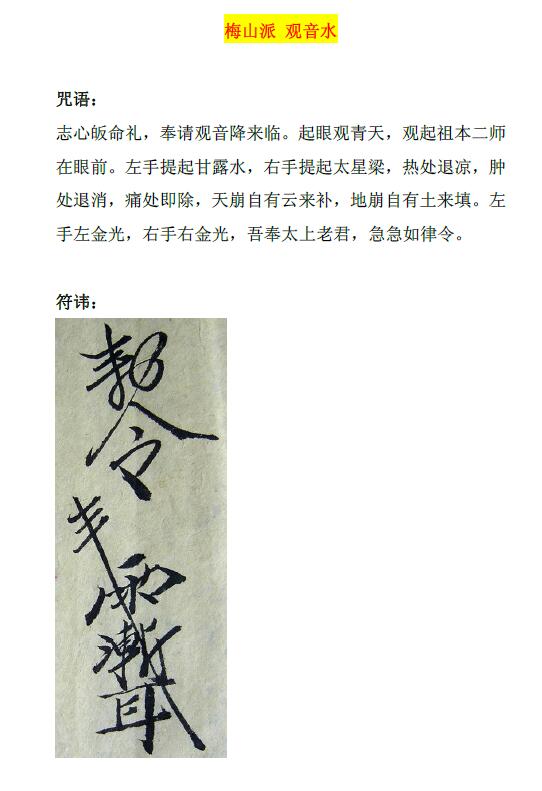 梅山派 观音水
咒语：
志心皈命礼，奉请观音降来临。起眼观青天，观起祖本二师
在眼前。左手提起甘露水，右手提起太星梁，热处退凉，肿
处退消，痛处即除，天崩自有云来补，地崩自有土来填。左
手左金光，右手右金光，吾奉太上老君，急急如律令。
符讳：
敕
令